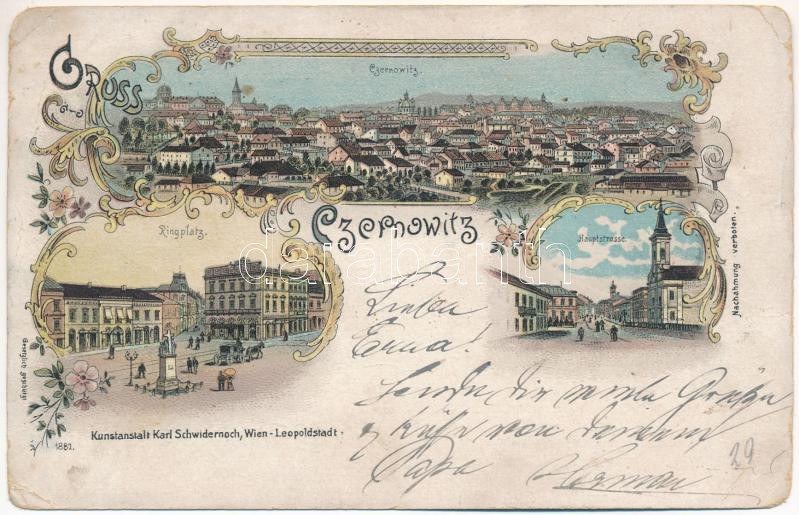 Gruss
Czernowitz.
aus
Czernowitz
Ringplatz.
Hauptstrasse.
Nachahmung verboten.
Gesetzlich geschützt
Liebe
Erna!
Sende dir viele Grüße
& Küße von deinem
Papa
Herman
29
Kunstanstalt Karl Schwidernoch, Wien-Leopoldstadt.
1881.
darabanth